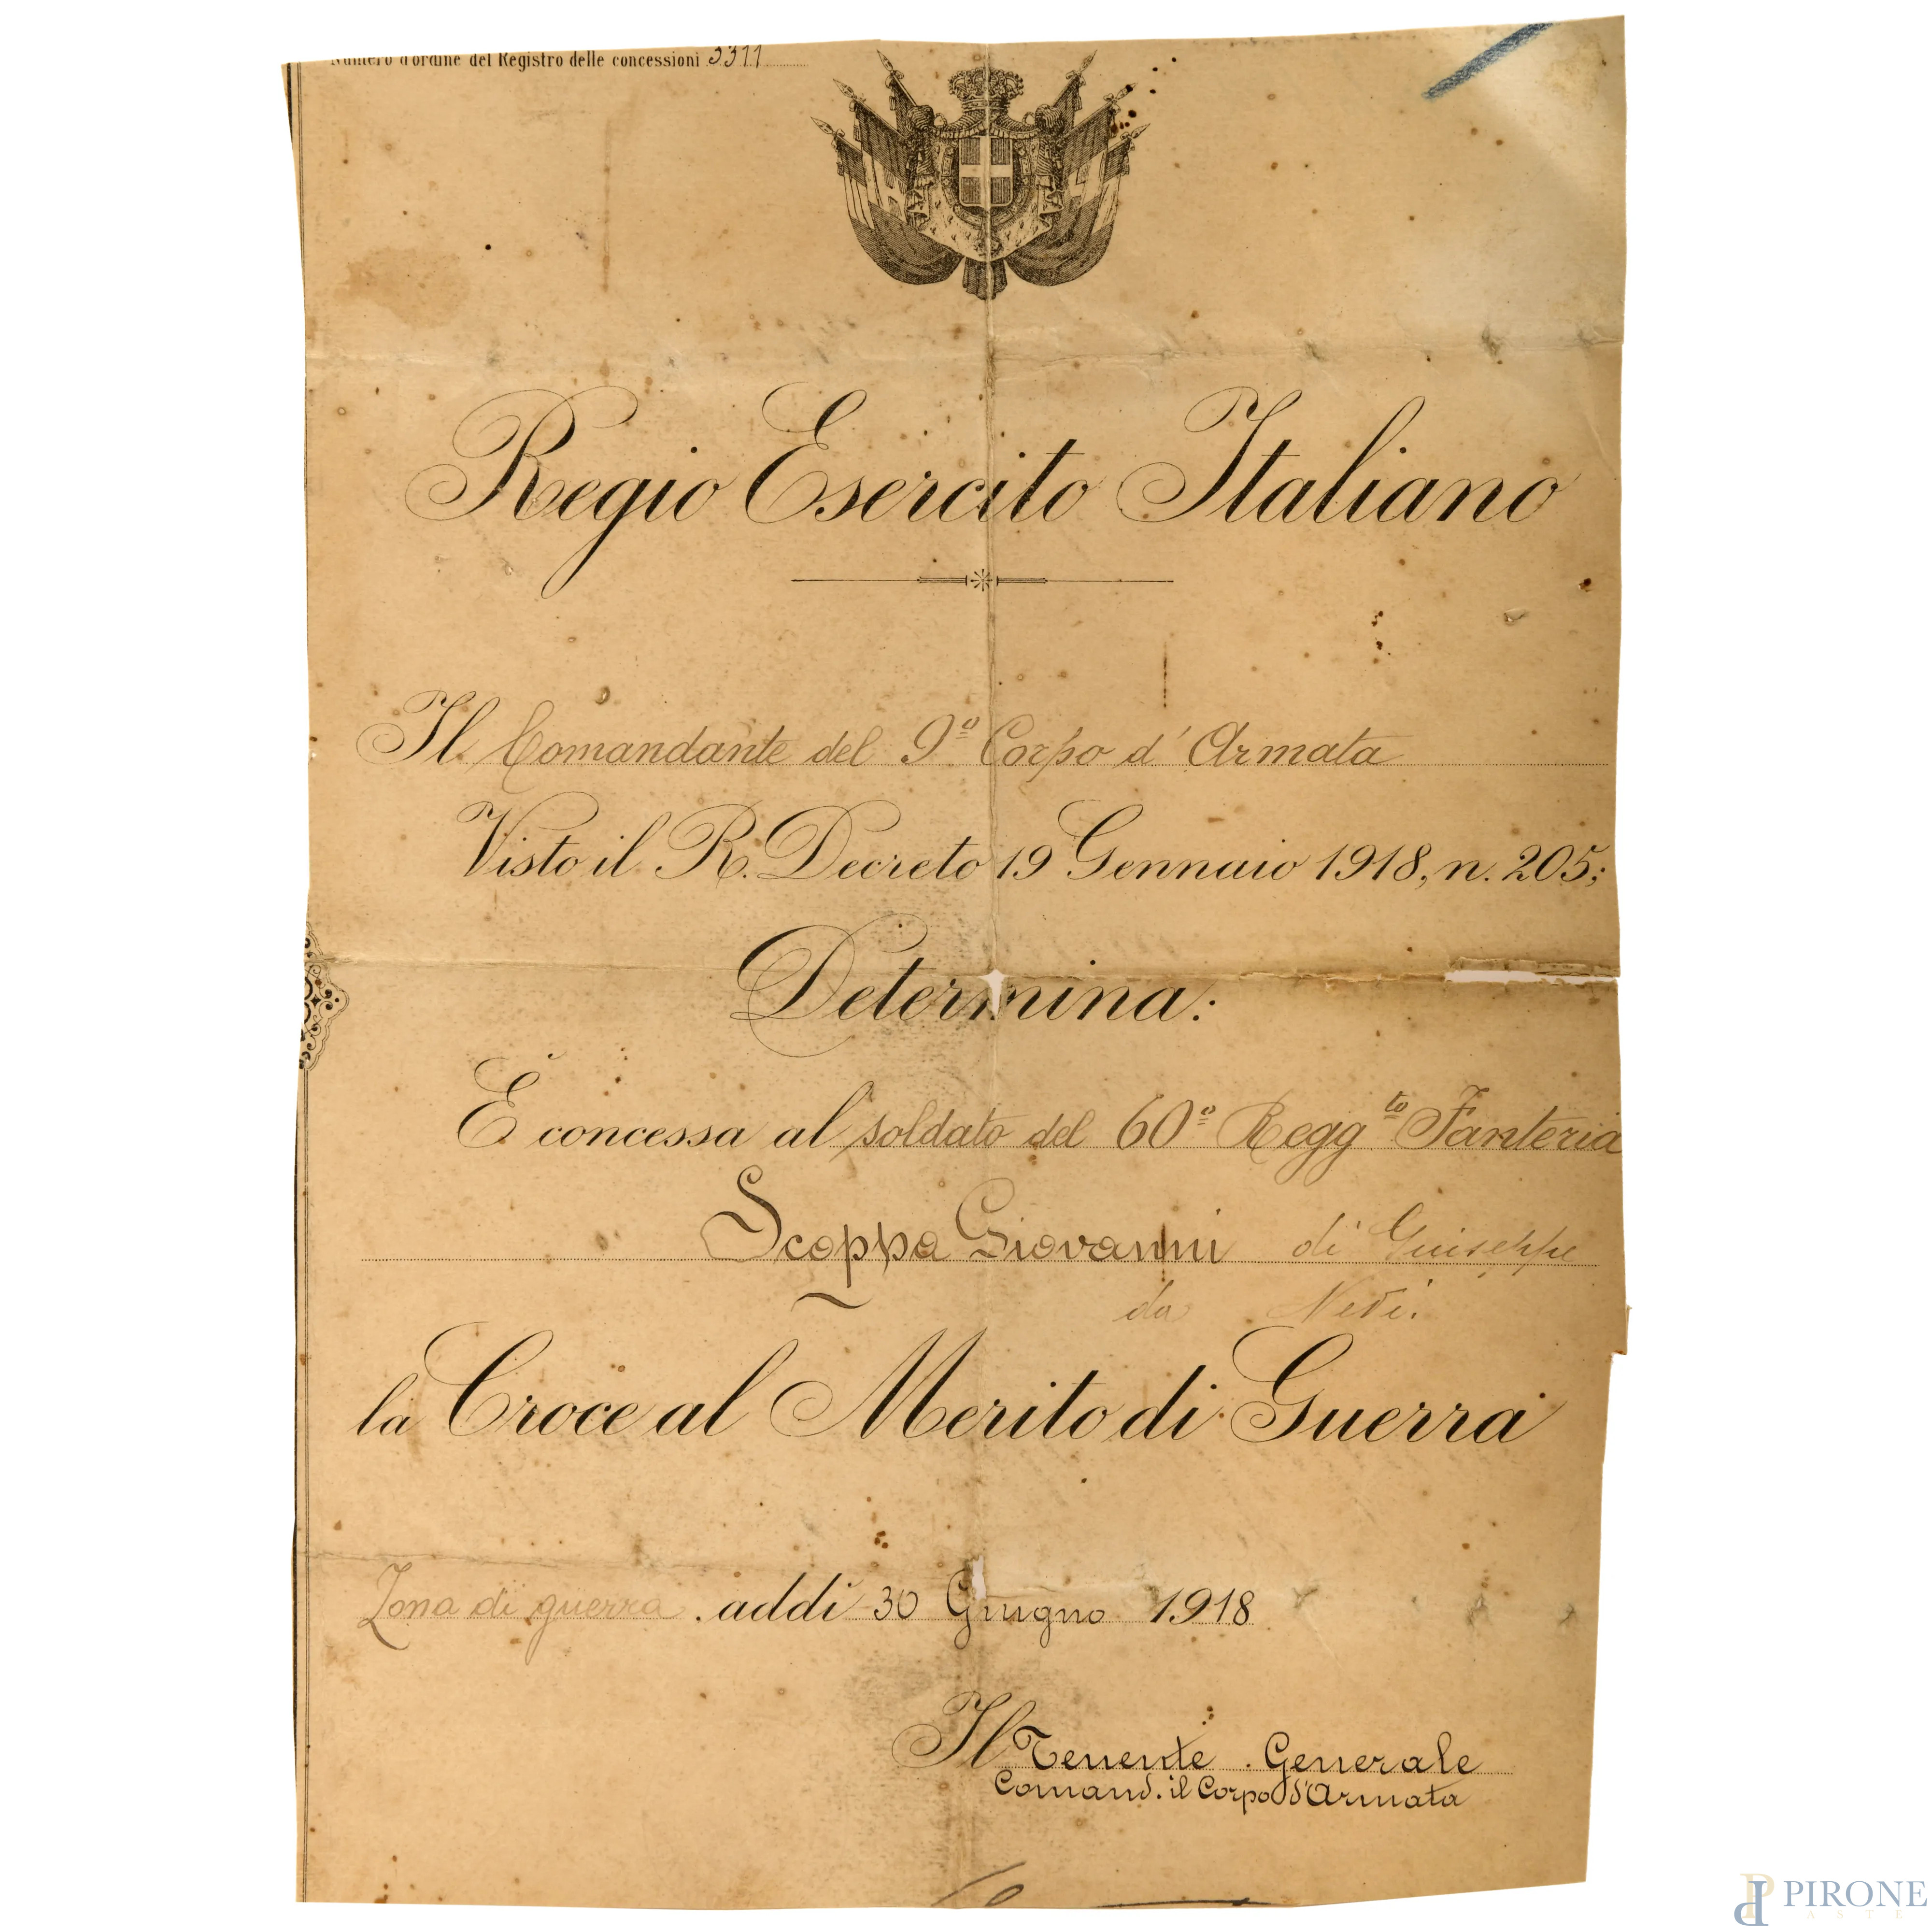 Numero d'ordine del Registro delle concessioni 3311
Regio Esercito Italiano
Il Comandante del 9º Corpo d'Armata
Visto il R. Decreto 19 Gennaio 1918, n. 205;
Determina:
È concessa al soldato del 60º Regg.to Fanteria
Scoppa Giovanni di Giuseppe
da
la Croce al Merito di Guerra
Zona di guerra. addì 30 Giugno 1918
Il Tenente Generale
Comand. il Corpo d'Armata
PIRONE
ASTE